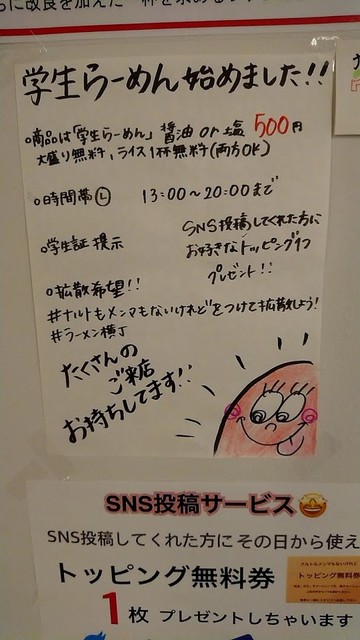 に改良を加えた一杯を求める
学生らーめん始めました!!
○商品は「学生らーめん」醤油or塩 500円
大盛り無料、ライス1杯無料(両方OK)
○時間帯Ⓛ 13:00〜20:00まで
○学生証 提示
SNS投稿してくれた方に
お好きなトッピング1つ
プレゼント!!
○拡散希望!!
#ナルトもメンマもないけれど をつけて拡散しよう!
#ラーメン横丁
たくさんの
ご来店
お待ちしてます!!
SNS投稿サービス🤩
SNS投稿してくれた方にその日から使え
トッピング無料券
トッピング無料券
1枚 プレゼントしちゃいます